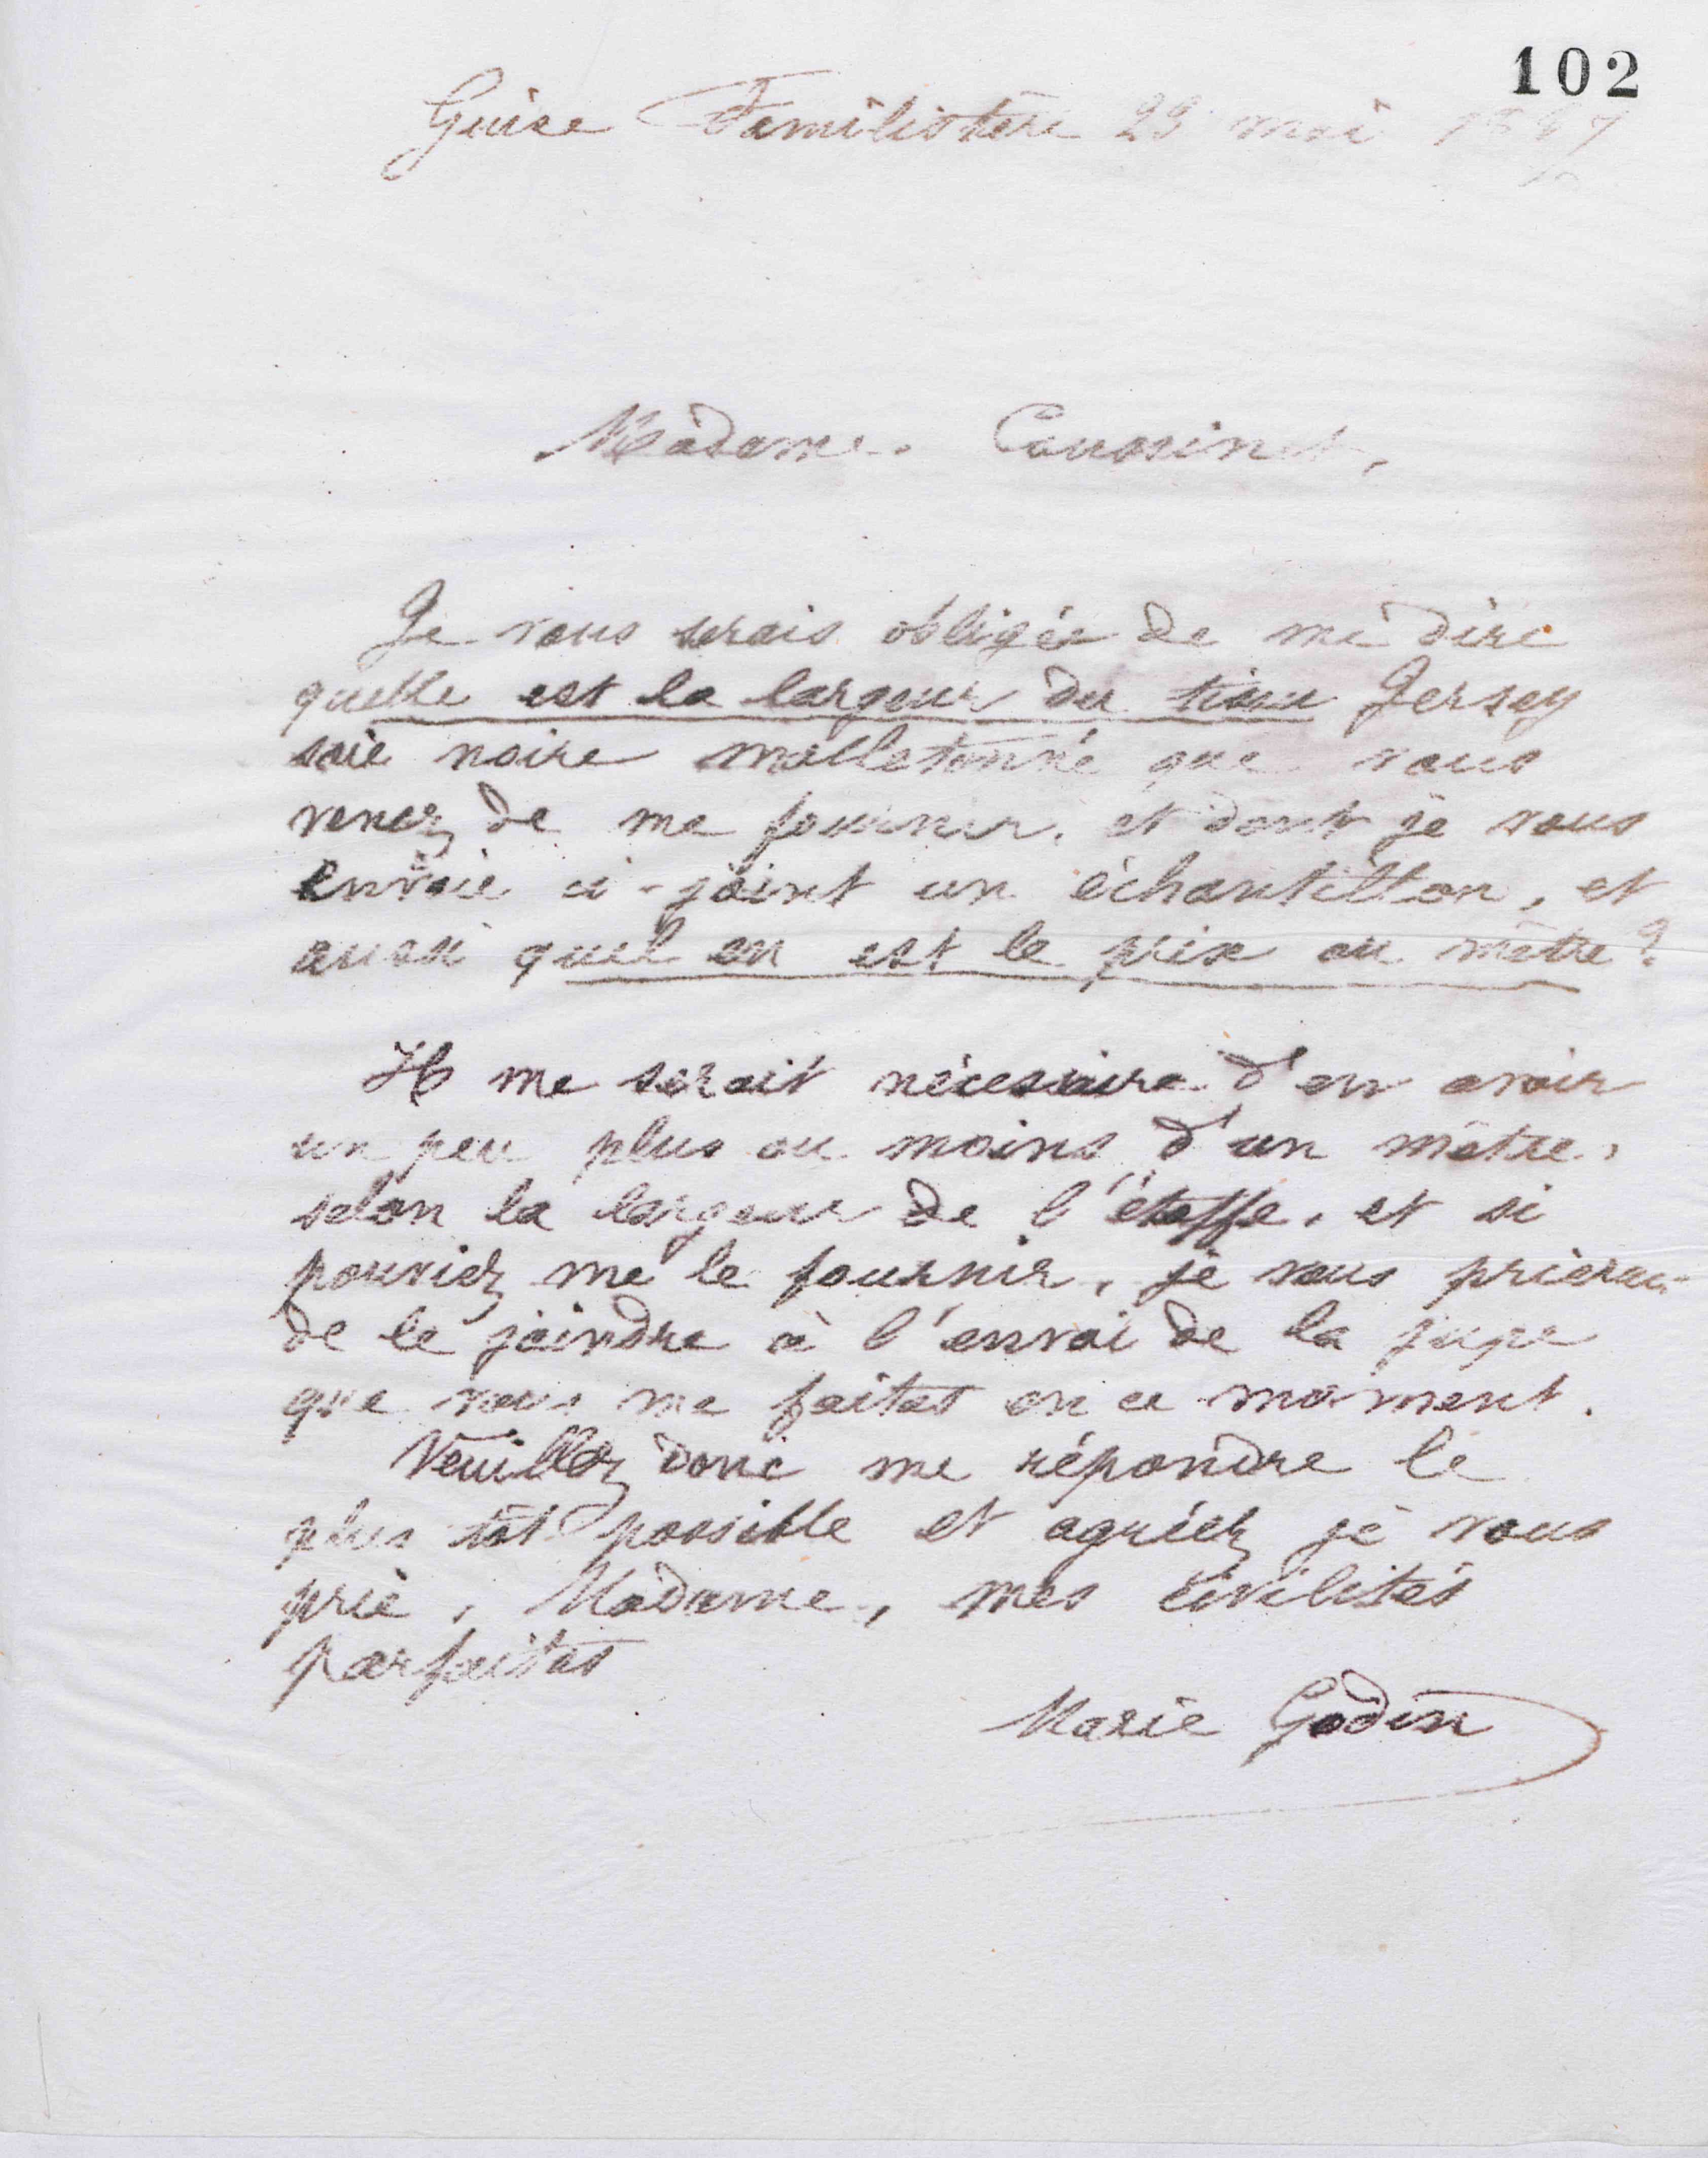 102
Guise Familistère 23 mai 1897
Madame Caussinet,
Je vous serais obligée de me dire
quelle est la largeur du tissu Jersey
soie noire molletonné que vous
venez de me fournir, et dont je vous
envoie ci-joint un échantillon, et
aussi quel en est le prix au mètre ?
Il me serait nécessaire d'en avoir
un peu plus ou moins d'un mètre,
selon la largeur de l'étoffe, et si
pouviez me le fournir, je vous prierai
de le joindre à l'envoi de la jupe
que vous me faites en ce moment.
Veuillez donc me répondre le
plus tôt possible et agréez je vous
prie, Madame, mes civilités
parfaites
Marie Godin